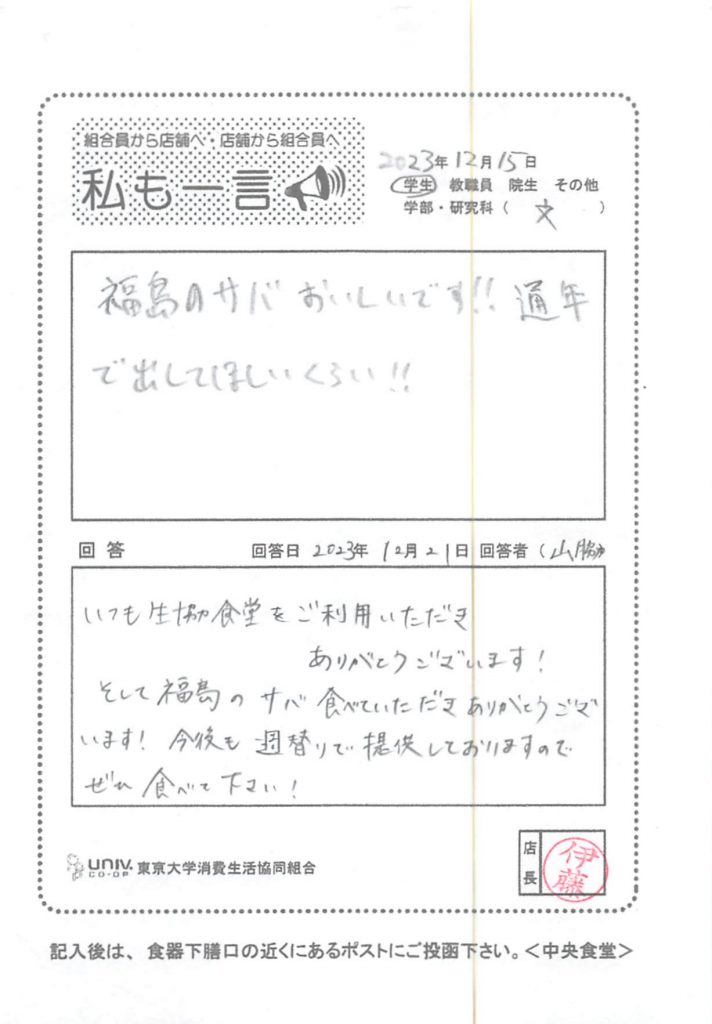 組合員から店舗へ・店舗から組合員へ
私も一言
2023年12月15日
学生 教職員 院生 その他
学部・研究科(文)
福島のサバ おいしいです!! 通年
で出してほしいくらい!!
回答 回答日 2023年 12月21日 回答者(山脇)
いつも生協食堂をご利用いただき
ありがとうございます!
そして福島の サバ 食べていただきありがとうござ
います! 今後も 週替りで提供しておりますので
ぜひ 食べて下さい!
UNIV. CO-OP 東京大学消費生活協同組合
店長 伊藤
記入後は、食器下膳口の近くにあるポストにご投函下さい。<中央食堂>